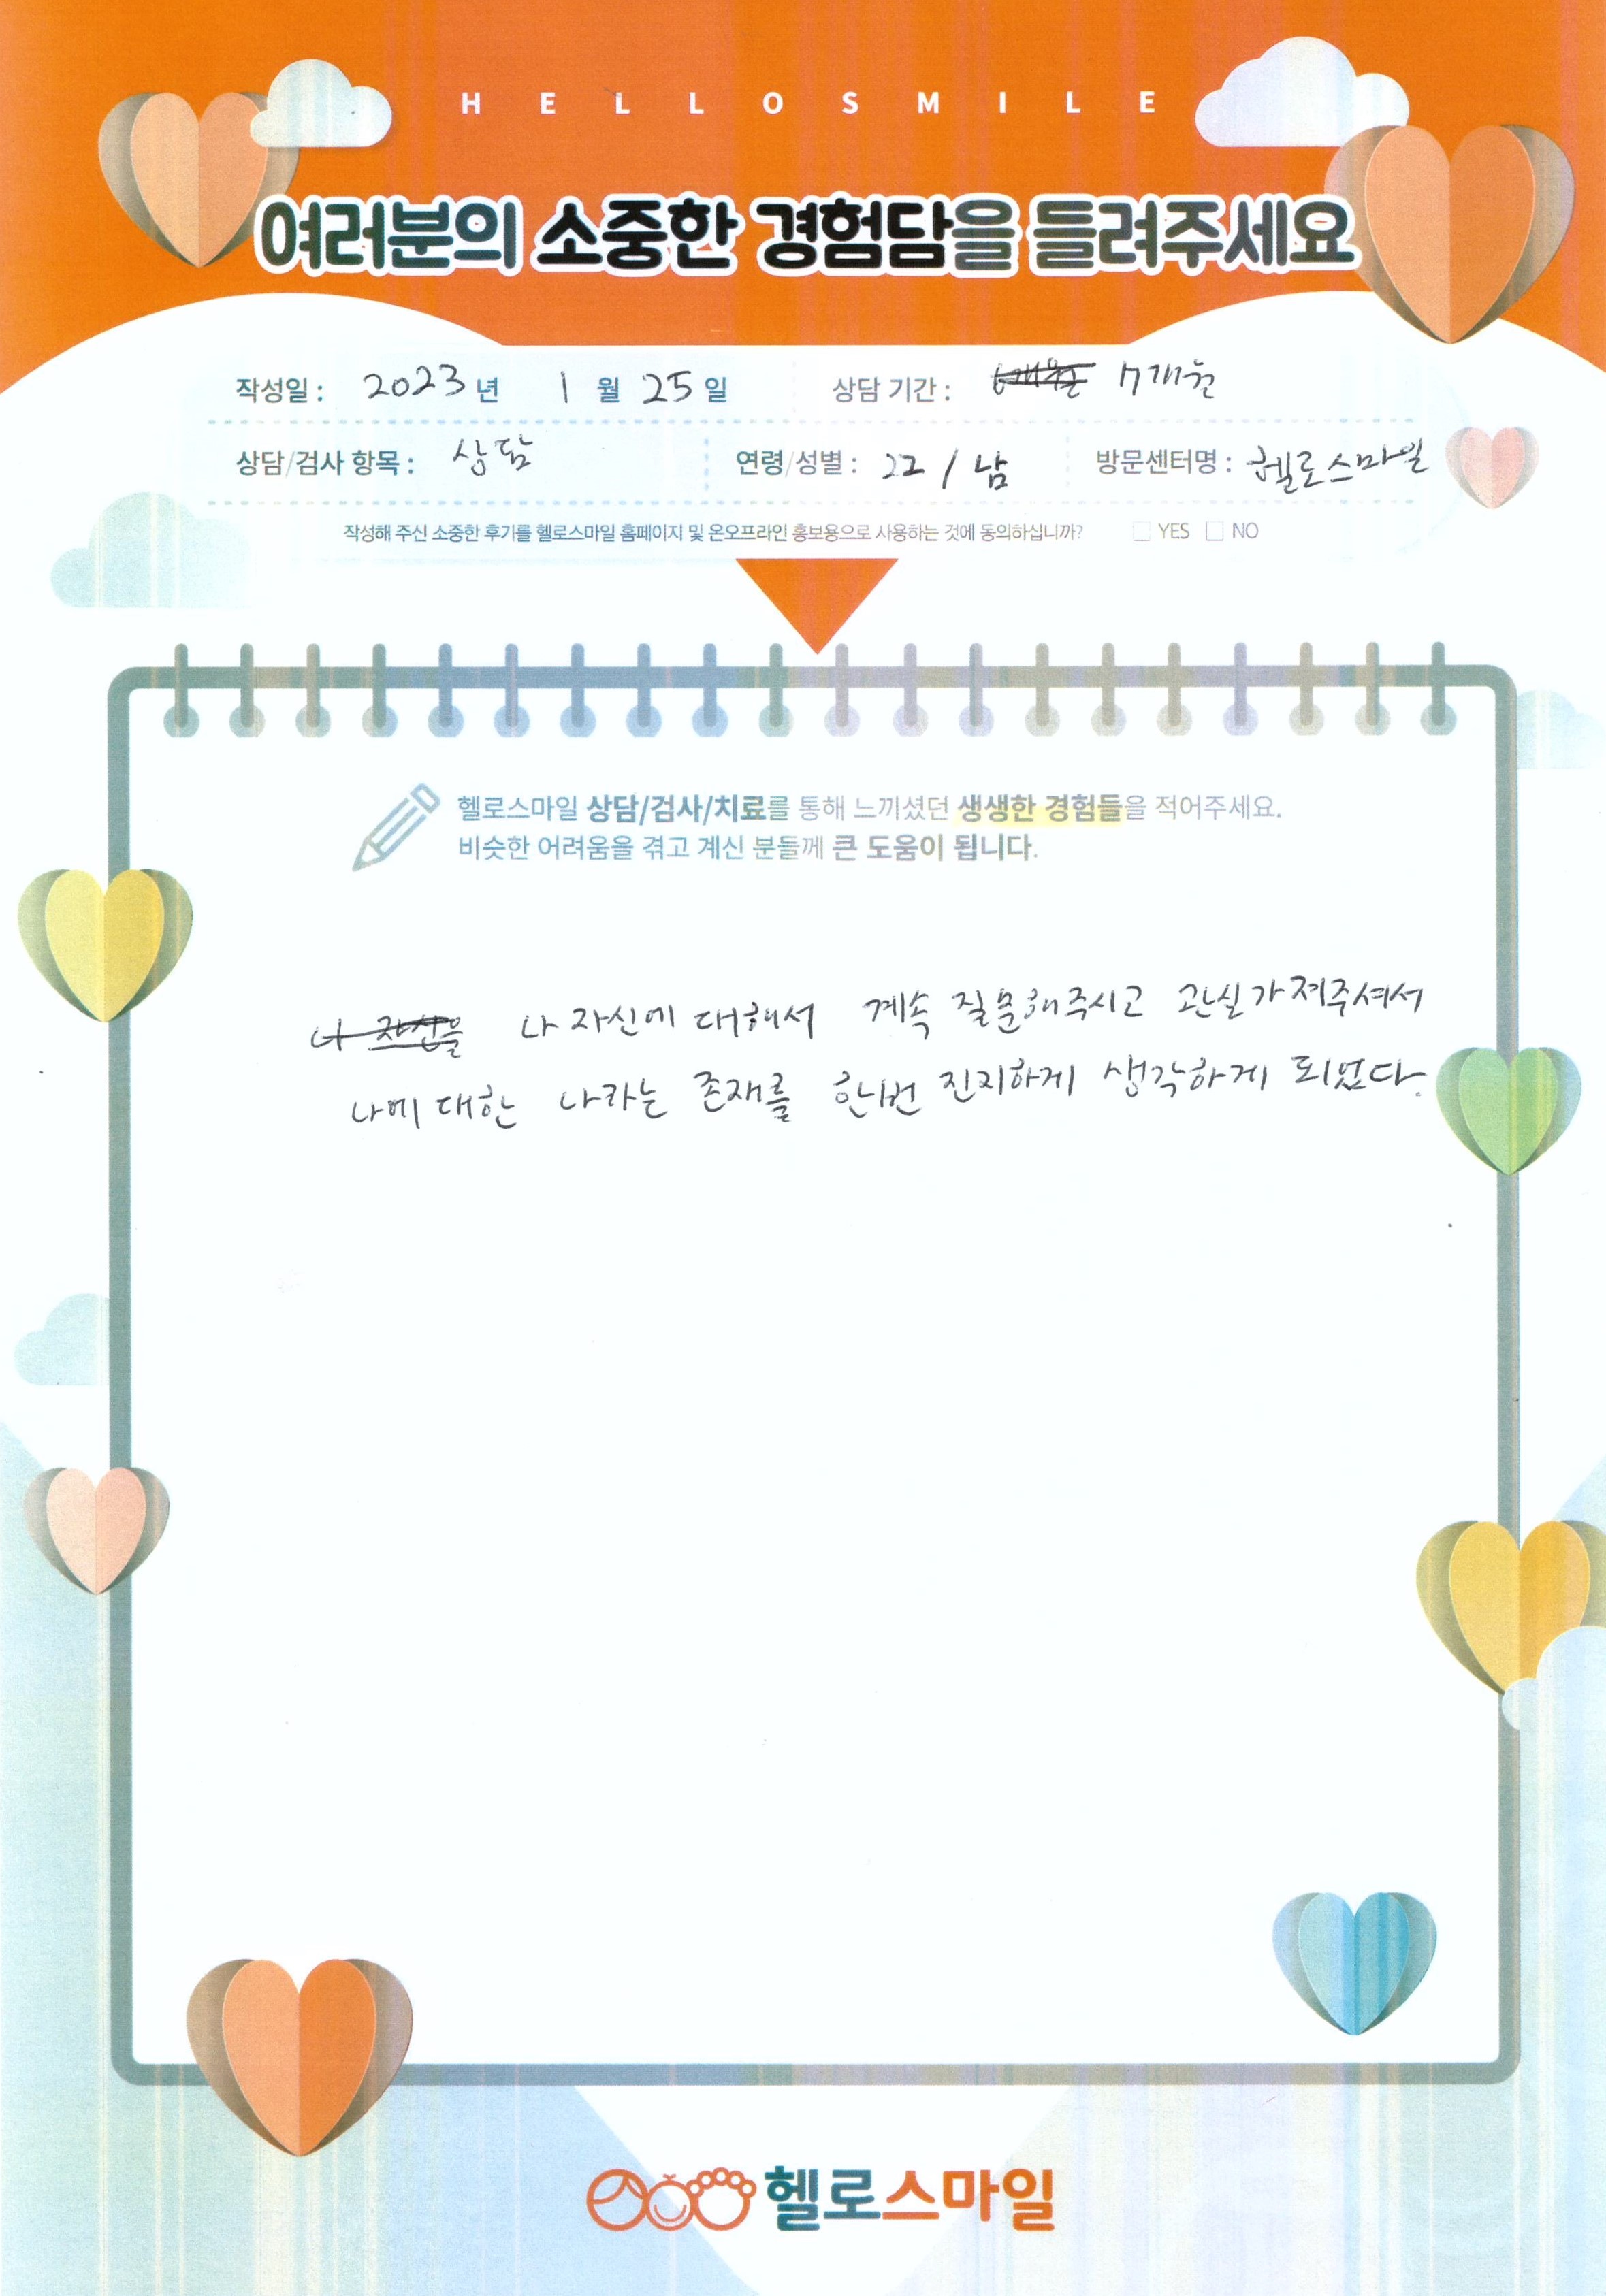 HELLOSMILE
여러분의 소중한 경험담을 들려주세요
작성일 : 2023년 1월 25일 상담 기간 : 7개월
상담/검사 항목 : 상담 연령/성별 : 22 / 남 방문센터명 : 헬로스마일
작성해 주신 소중한 후기를 헬로스마일 홈페이지 및 온오프라인 홍보용으로 사용하는 것에 동의하십니까? YES NO
헬로스마일 상담/검사/치료를 통해 느끼셨던 생생한 경험들을 적어주세요.
비슷한 어려움을 겪고 계신 분들께 큰 도움이 됩니다.
나 자신을 나 자신에 대해서 계속 질문해주시고 관심가져주셔서
나에 대한 나라는 존재를 한번 진지하게 생각하게 되었다.
헬로스마일